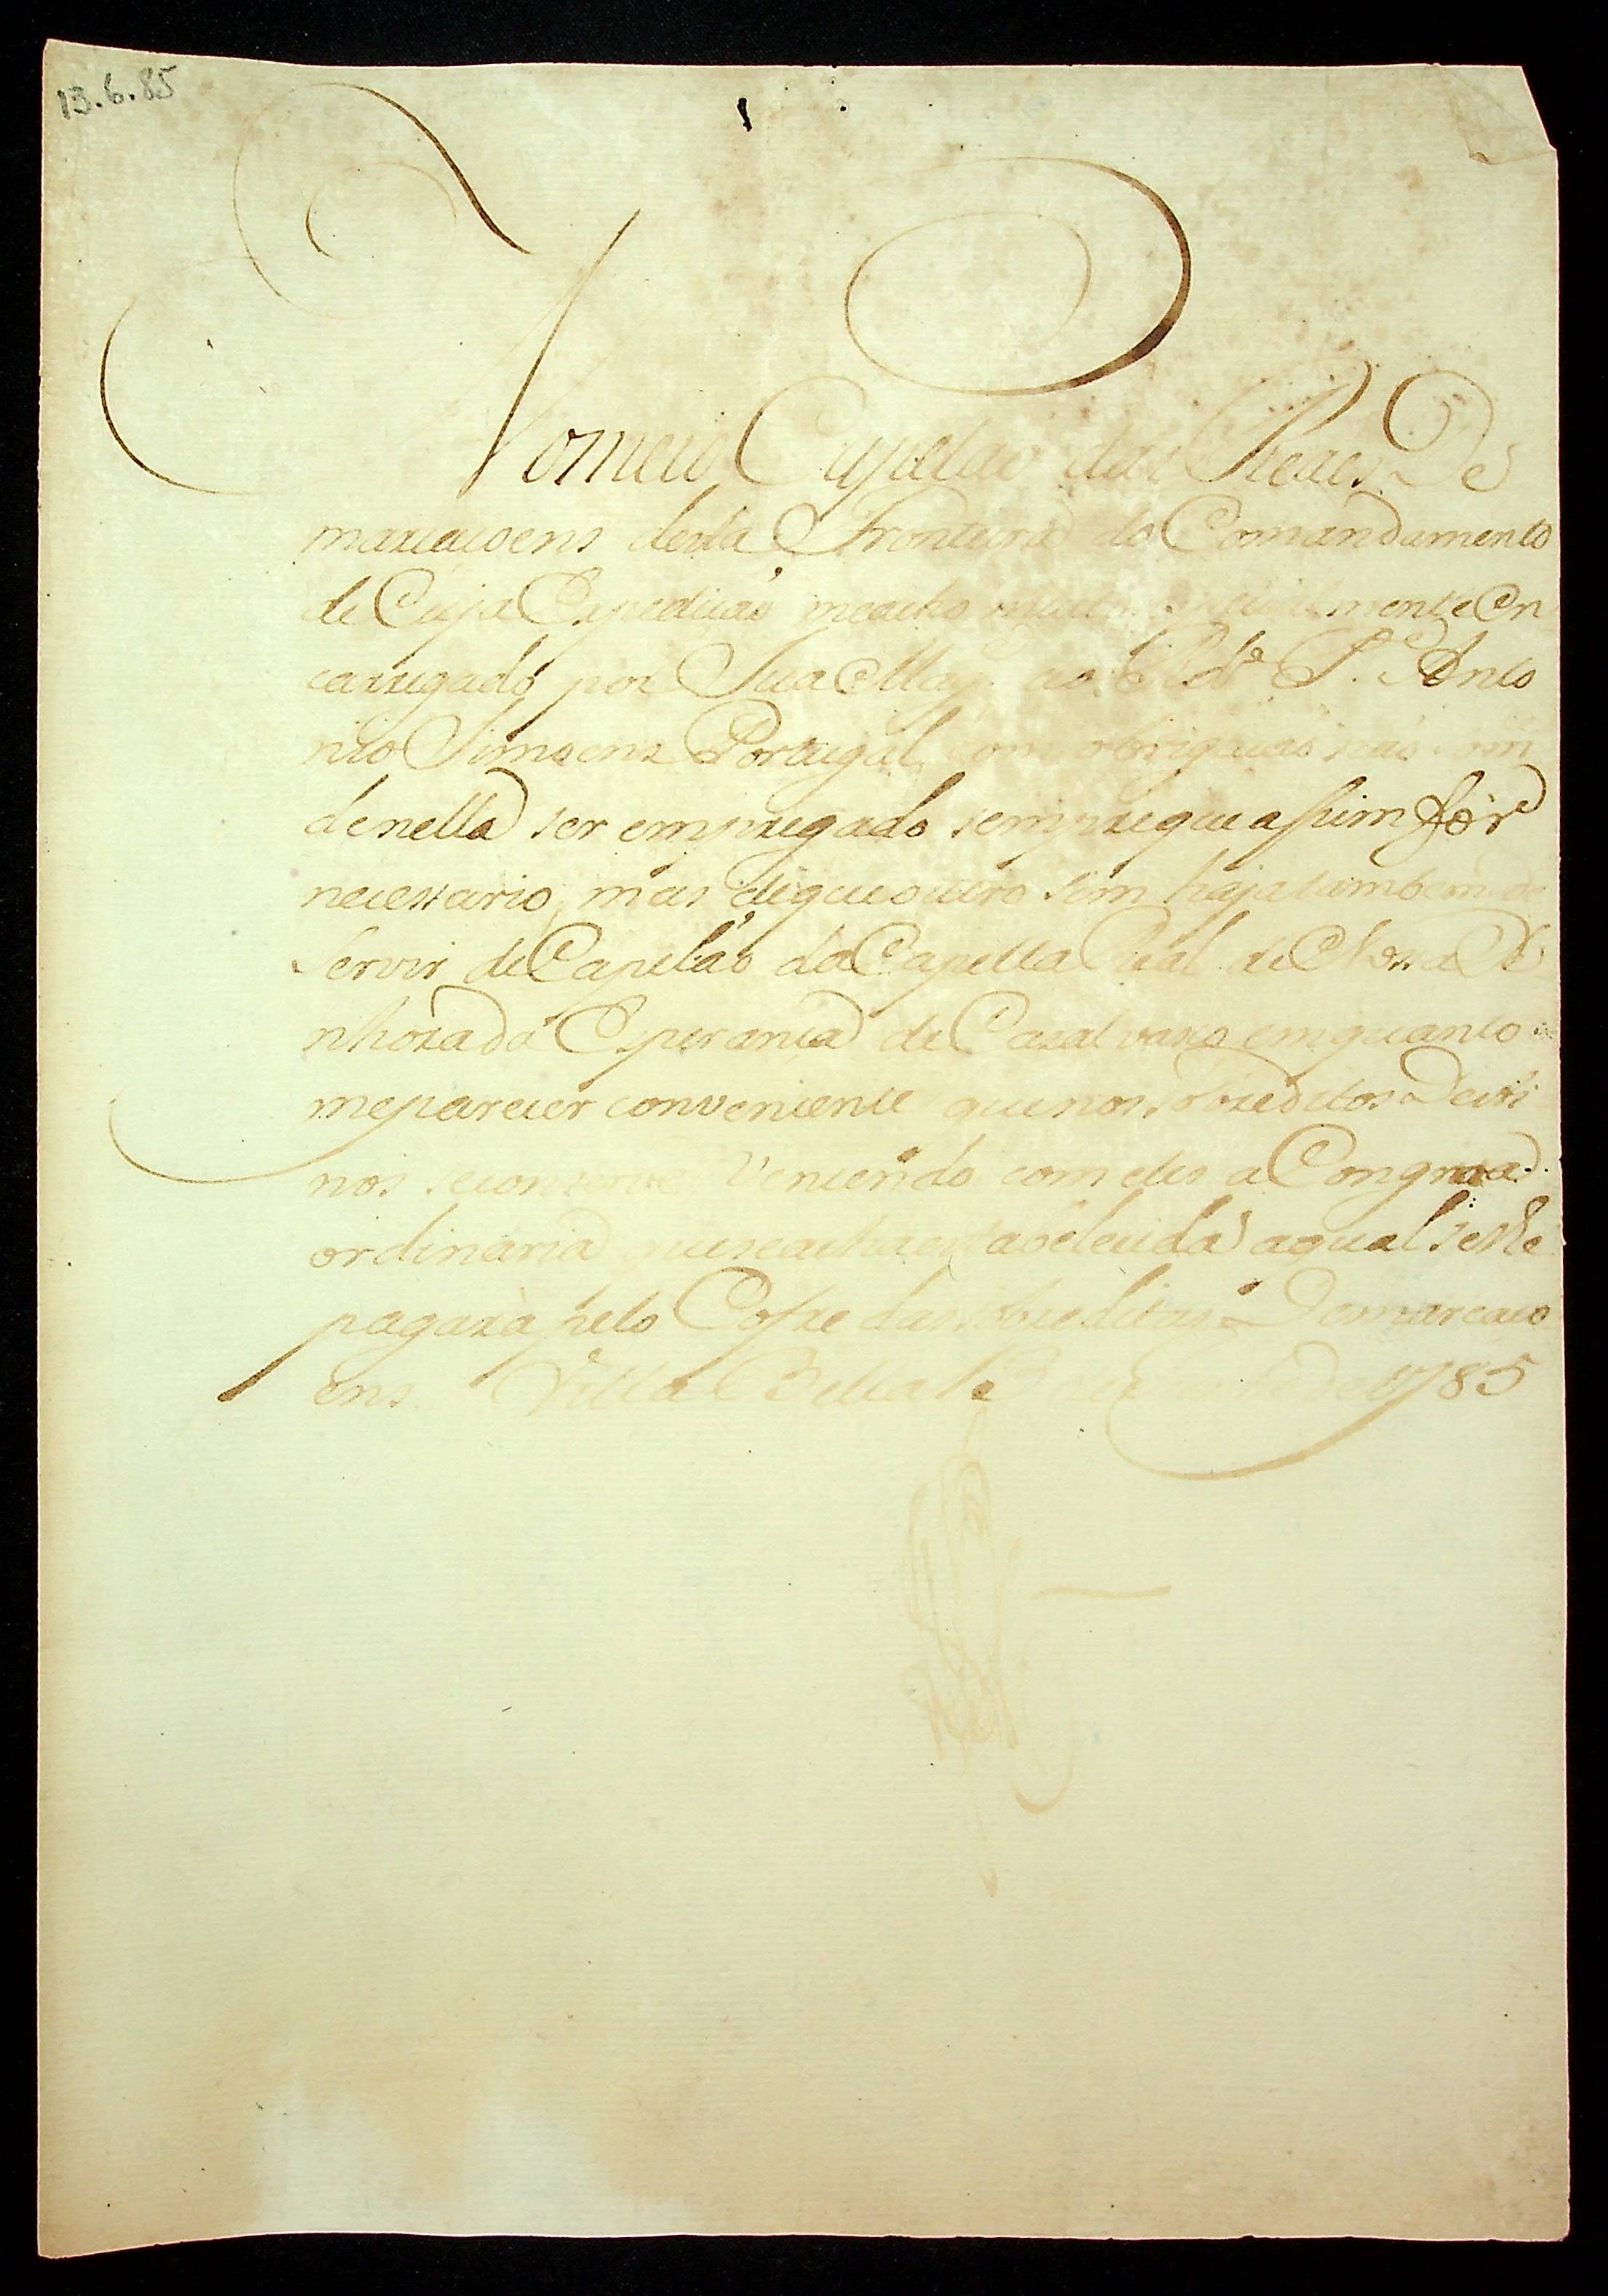 13.6.85
Nomeio Capelaõ das Reaes De
marcaçoens desta Fronteira do Comandamento
de Cuja Expediçaõ meacho muito mente En
carregado por Sua Mag. ao R.do P.e Anto
nio Simoens Portugal, com obrigaçaõ naõ
denella ser empregado sempreque assim fòr
necessario, mas deque outro sim haja tambem de
servir de Capelaõ da Capella Real de Nossa Se
nhora da Esperança de Casalvasco emquanto
meparecer conveniente quenos sobreditos Desti
nos seconserve, Vencendo com eles a Congrua
ordinaria queseacha estabelecida aqual selhe
pagarà pelo Cofre das sobreditas Demarcaço
ens. Villa Bella 1785